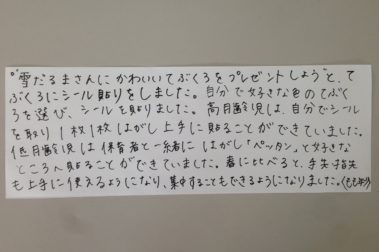 "雪だるまさんにかわいいてぶくろをプレゼントしよう"と、て
ぶくろにシール貼りをしました。自分で好きな色のてぶく
ろを選び、シールを貼りました。高月齢児は、自分でシール
を取り1枚1枚はがし上手に貼ることができていました。
低月齢児は保育者と一緒にはがし「ペッタン」と好きな
ところへ貼ることができていました。春に比べると、手先指先
も上手に使えるようになり、集中することもできるようになりました。